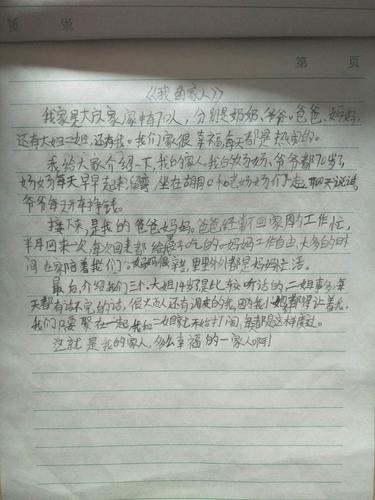 第 页
《我的家人》
我家是大家家,家有7口人,分别是奶奶、爷爷、爸爸、妈妈,
还有大姐二姐,还有我。我们家很幸福每天都是热闹的。
我给大家介绍一下我的家人,我的奶奶、爷爷都70岁了
奶奶每天早早起来,坐在胡同口和老奶奶们聊天说话,
爷爷每天开车挣钱。
接下来是我的爸爸妈妈。爸爸经常不回家因为工作忙,
半月回来一次每次回来都给我吃的,妈妈工作自由,大多的时
间在家陪着我们。妈妈很辛苦,里里外外都是妈妈忙活。
最后介绍我们三个,大姐是比较听话的,二姐每
天都有说不完的话,很大而还有调皮的我,她们都得让着我,
我们只要聚在一起,我和二姐就开始打闹,每都是这样度过。
这就是我的家人,多么幸福的一家人啊!